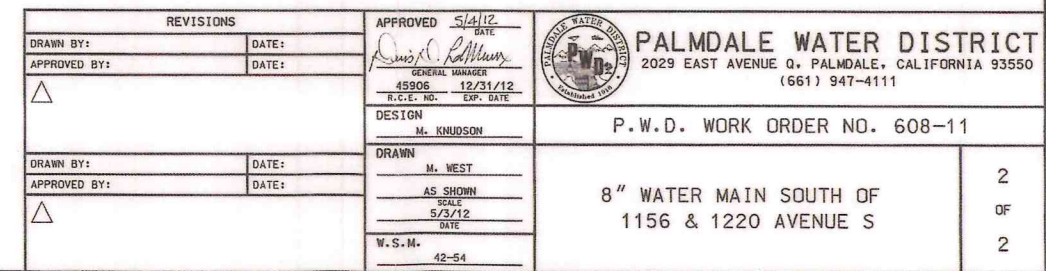 REVISIONS
DRAWN BY: DATE:
APPROVED BY: DATE:
DRAWN BY: DATE:
APPROVED BY: DATE:
APPROVED 5/4/12
DATE
GENERAL MANAGER
45906 12/31/12
R.C.E. NO. EXP. DATE
DESIGN
M. KNUDSON
DRAWN
M. WEST
AS SHOWN
SCALE
5/3/12
DATE
W.S.M.
42-54
PALMDALE WATER DISTRICT
PWD
Established 1918
PALMDALE WATER DISTRICT
2029 EAST AVENUE Q, PALMDALE, CALIFORNIA 93550
(661) 947-4111
P.W.D. WORK ORDER NO. 608-11
8" WATER MAIN SOUTH OF
1156 & 1220 AVENUE S
2
OF
2